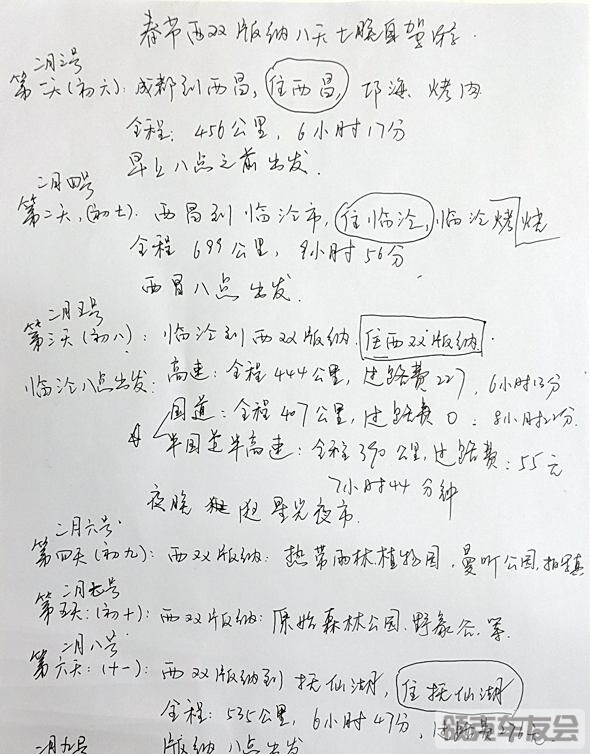 春节西双版纳八天七晚自驾游.
二月三号
第一天(初六): 成都到西昌, 住西昌 邛海 烤肉
全程: 456公里, 6小时17分
早上八点之前出发.
二月四号
第二天, (初七). 西昌到临沧市, 住临沧, 临沧烤烧
全程 699公里, 9小时56分
西昌八点出发.
二月五号
第三天(初八): 临沧到西双版纳. 住西双版纳.
临沧八点出发: 高速: 全程444公里, 过路费227, 6小时13分
国道: 全程407公里, 过路费0: 8小时22分.
半国道半高速: 全程390公里, 过路费: 55元
7小时44分钟
夜晚 逛星光夜市.
二月六号.
第四天(初九): 西双版纳: 热带雨林植物园, 曼听公园, 拍写真
二月七号
第五天: (初十): 西双版纳: 原始森林公园. 野象谷. 等.
二月八号
第六天: (十一): 西双版纳到抚仙湖, 住抚仙湖
全程: 535公里, 6小时47分, 过路费
二月九号 版纳八点出发